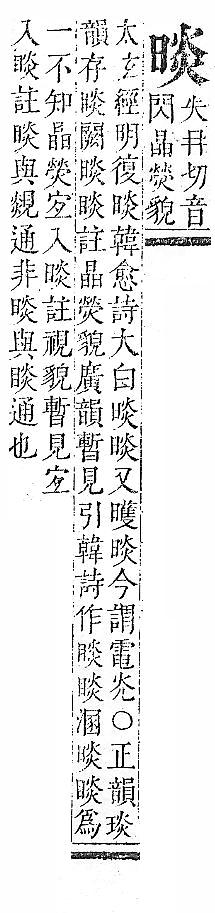 晱失冉切音
閃晶熒貌
太玄經明復晱韓愈詩太白晱晱又曤晱今謂電灮○正韻琰
韻存睒闕晱晱註晶熒貌廣韻暫見引韓詩作睒睒溷晱睒爲
一不知晶熒宐入晱註視貌暫見宐
入睒註睒與覢通非晱與睒通也